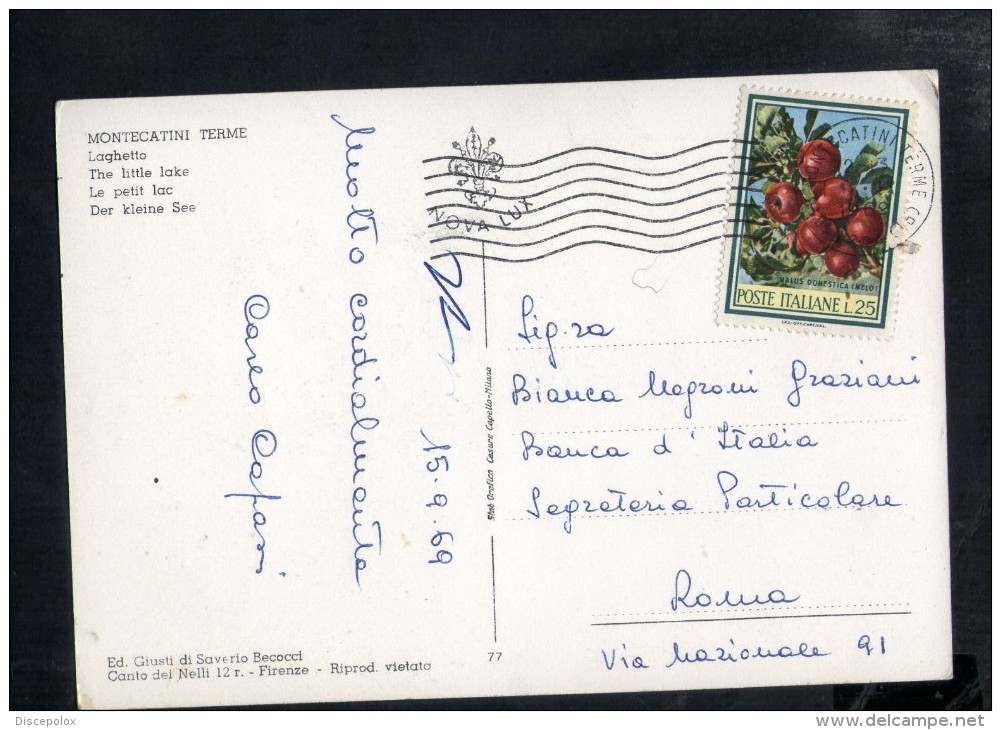 MONTECATINI TERME
Laghetto
The little lake
Le petit lac
Der kleine See
Molto cordialmente
Carlo Capasi
15.9.69
NOVA LUX
MALUS DOMESTICA (MELO)
POSTE ITALIANE L.25
I.P.S.-OFF.CART.VAL.
Sig.ra
Bianca Magroni Graziani
Banca d'Italia
Segreteria Particolare
Roma
Via Nazionale 91
Stab Grafico Cesare Capello-Milano
Ed. Giusti di Saverio Becocci
Canto dei Nelli 12 r. - Firenze - Riprod. vietata
77
Discepolox
www.delcampe.net